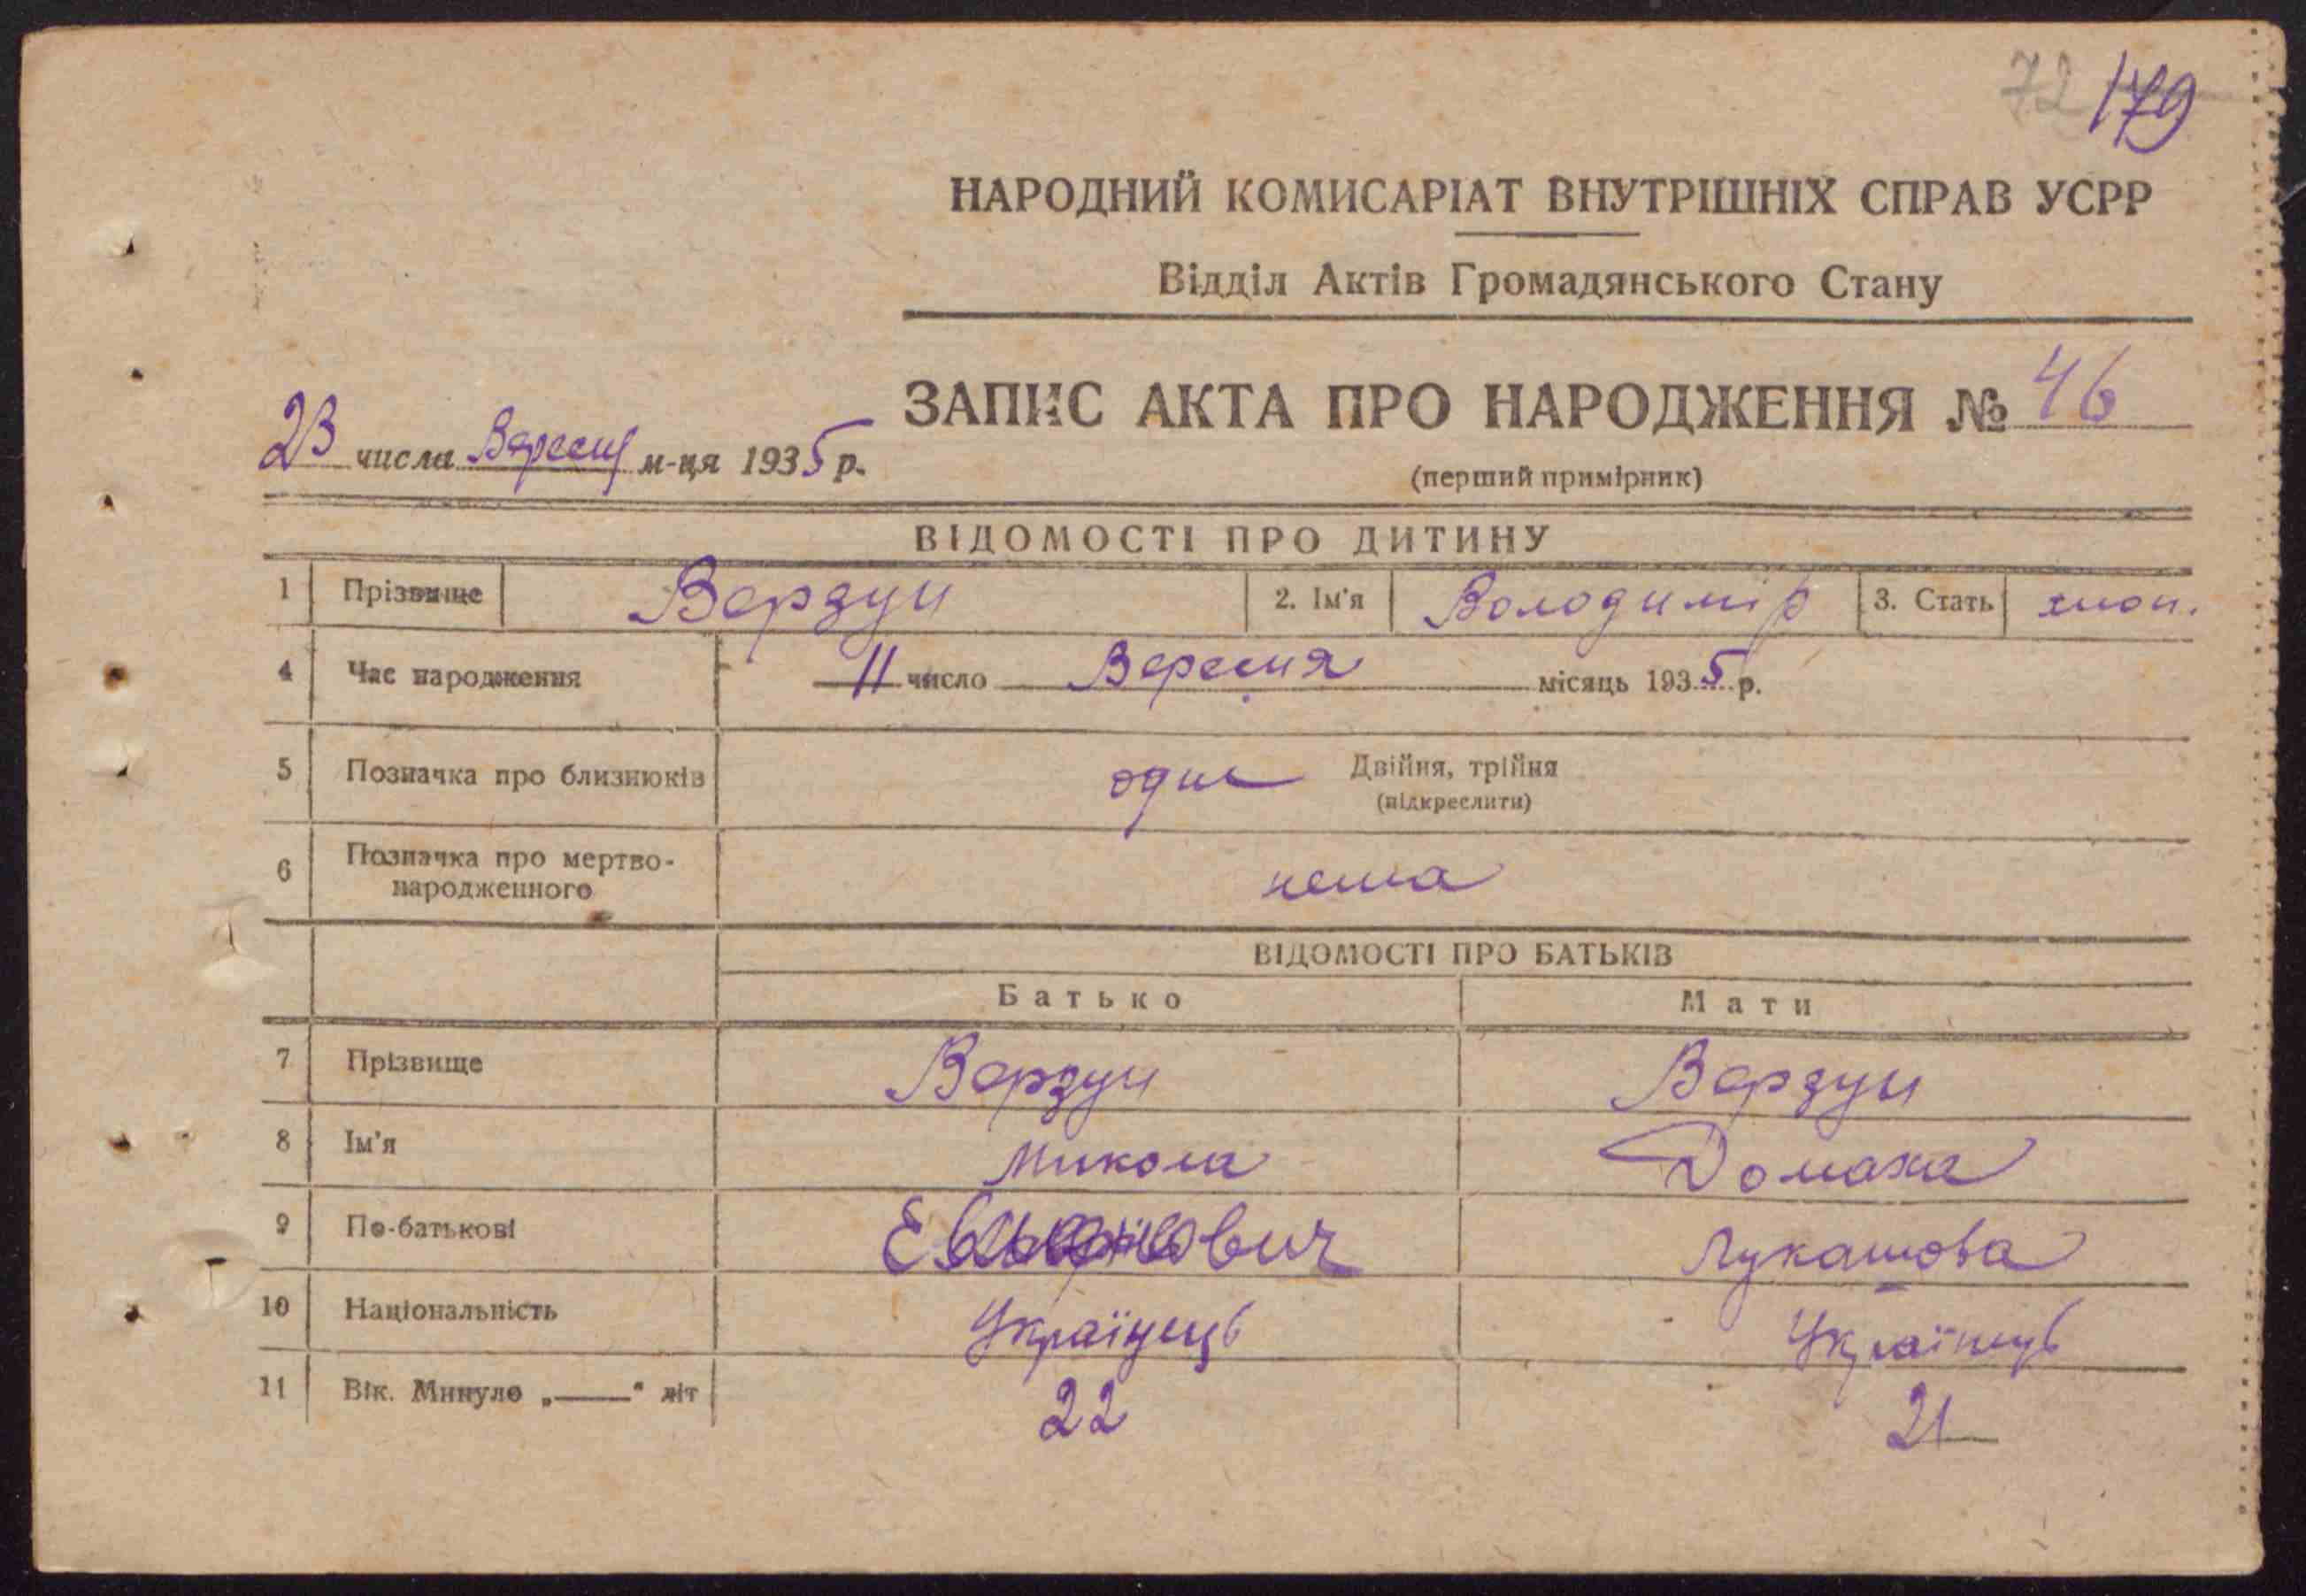 72 179
НАРОДНИЙ КОМИСАРІАТ ВНУТРІШНІХ СПРАВ УСРР
Відділ Актів Громадянського Стану
ЗАПИС АКТА ПРО НАРОДЖЕННЯ № 46
23 числа Вересня м-ця 1935 р.
(перший примірник)
ВІДОМОСТІ ПРО ДИТИНУ
1 Прізвище Верзун 2. Ім'я Володимір 3. Стать
4 Час народження 11 число Вересня місяць 1935 р.
5 Позначка про близнюків одне Двійня, трійня
(підкреслити)
6 Позначка про мертво-
народженного нема
ВІДОМОСТІ ПРО БАТЬКІВ
Батько Мати
7 Прізвище Верзун Верзун
8 Ім'я Микола Домаха
9 По-батькові Лукашова
10 Національність Українець Українець
11 Вік. Минуло „——" літ 22 21